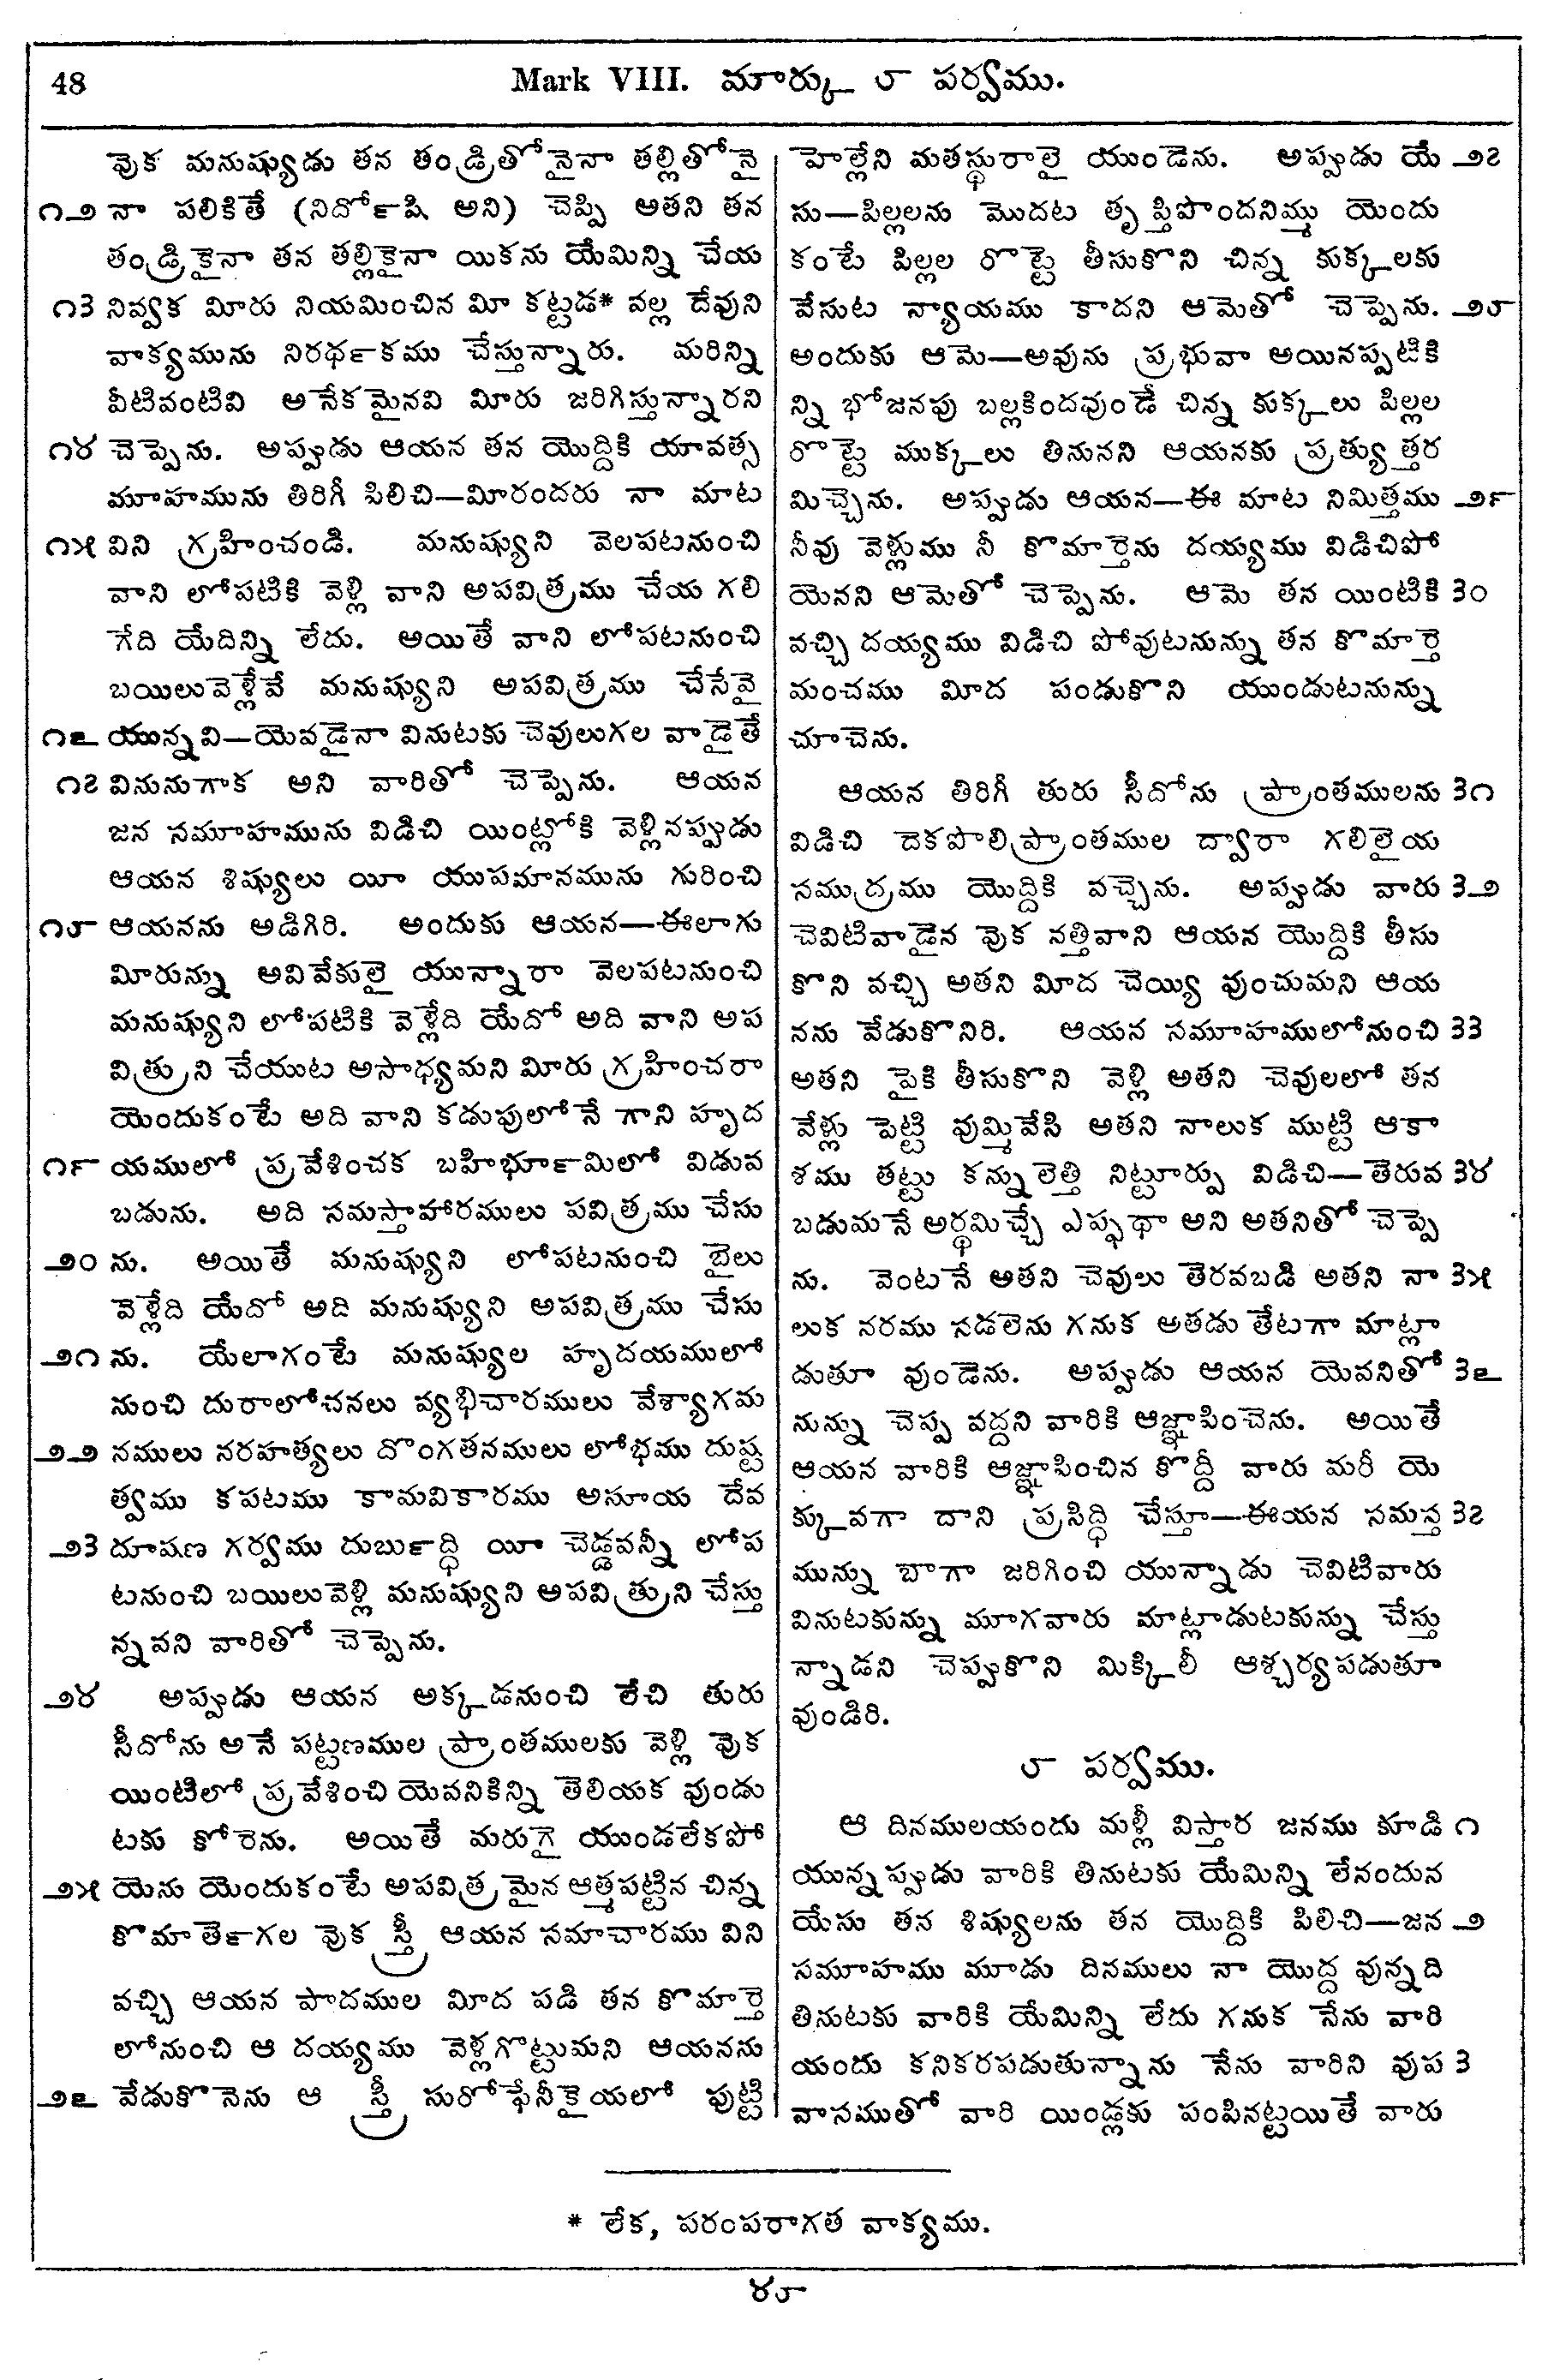 48
Mark VIII. మార్కు ౮ పర్వము.
వొక మనుష్యుడు తన తండ్రితోనైనా తల్లితోనై
౧౨ నా పలికితే (నిదో౯షి అని) చెప్పి అతని తన
తండ్రికైనా తన తల్లికైనా యికను యేమిన్ని చేయ
౧౩ నివ్వక మీరు నియమించిన మీ కట్టడ* వల్ల దేవుని
వాక్యమును నిరథ౯కము చేస్తున్నారు. మరిన్ని
వీటివంటివి అనేకమైనవి మీరు జరిగిస్తున్నారని
౧౪ చెప్పెను. అప్పుడు ఆయన తన యొద్దికి యావత్స
మూహమును తిరిగీ పిలిచి—మీరందరు నా మాట
౧౫ విని గ్రహించండి. మనుష్యుని వెలపటనుంచి
వాని లోపటికి వెళ్లి వాని అపవిత్రము చేయ గలి
గేది యేదిన్ని లేదు. అయితే వాని లోపటనుంచి
బయిలువెళ్లేవే మనుష్యుని అపవిత్రము చేసేవై
౧౬ యున్నవి—యెవడైనా వినుటకు చెవులుగల వాడైతే
౧౭ వినునుగాక అని వారితో చెప్పెను. ఆయన
జన సమూహమును విడిచి యింట్లోకి వెళ్లినప్పుడు
ఆయన శిష్యులు యీ యుపమానమును గురించి
౧౮ ఆయనను అడిగిరి. అందుకు ఆయన—ఈలాగు
మీరున్ను అవివేకులై యున్నారా వెలపటనుంచి
మనుష్యుని లోపటికి వెళ్లేది యేదో అది వాని అప
విత్రుని చేయుట అసాధ్యమని మీరు గ్రహించరా
యెందుకంటే అది వాని కడుపులోనే గాని హృద
౧౯ యములో ప్రవేశించక బహిభూ౯మిలో విడువ
బడును. అది సమస్తాహారములు పవిత్రము చేసు
౨౦ ను. అయితే మనుష్యుని లోపటనుంచి బైలు
వెళ్లేది యేదో అది మనుష్యుని అపవిత్రము చేసు
౨౧ ను. యేలాగంటే మనుష్యుల హృదయములో
నుంచి దురాలోచనలు వ్యభిచారములు వేశ్యాగమ
౨౨ నములు నరహత్యలు దొంగతనములు లోభము దుష్ట
త్వము కపటము కామవికారము అసూయ దేవ
౨౩ దూషణ గర్వము దుబు౯ద్ధి యీ చెడ్డవన్నీ లోప
టనుంచి బయిలువెళ్లి మనుష్యుని అపవిత్రుని చేస్తు
న్నవని వారితో చెప్పెను.
౨౪ అప్పుడు ఆయన అక్కడనుంచి లేచి తురు
సీదోను అనే పట్టణముల ప్రాంతములకు వెళ్లి వొక
యింటిలో ప్రవేశించి యెవనికిన్ని తెలియక వుండు
టకు కోరెను. అయితే మరుగై యుండలేకపో
౨౫ యెను యెందుకంటే అపవిత్రమైన ఆత్మపట్టిన చిన్న
కొమాతె౯గల వొక స్త్రీ ఆయన సమాచారము విని
వచ్చి ఆయన పాదముల మీద పడి తన కొమార్తె
లోనుంచి ఆ దయ్యము వెళ్లగొట్టుమని ఆయనను
౨౬ వేడుకొనెను ఆ స్త్రీ సురోఫేనీకైయలో పుట్టి
హెల్లేని మతస్థురాలై యుండెను. అప్పుడు యే ౨౭
సు—పిల్లలను మొదట తృప్తిపొందనిమ్ము యెందు
కంటే పిల్లల రొట్టె తీసుకొని చిన్న కుక్కలకు
వేసుట న్యాయము కాదని ఆమెతో చెప్పెను. ౨౮
అందుకు ఆమె—అవును ప్రభువా అయినప్పటికి
న్ని భోజనపు బల్లకిందవుండే చిన్న కుక్కలు పిల్లల
రొట్టె ముక్కలు తినునని ఆయనకు ప్రత్యుత్తర
మిచ్చెను. అప్పుడు ఆయన—ఈ మాట నిమిత్తము ౨౯
నీవు వెళ్లుము నీ కొమార్తెను దయ్యము విడిచిపో
యెనని ఆమెతో చెప్పెను. ఆమె తన యింటికి ౩౦
వచ్చి దయ్యము విడిచి పోవుటనున్ను తన కొమార్తె
మంచము మీద పండుకొని యుండుటనున్ను
చూచెను.
ఆయన తిరిగీ తురు సీదోను ప్రాంతములను ౩౧
విడిచి దెకపొలిప్రాంతముల ద్వారా గలిలైయ
సముద్రము యొద్దికి వచ్చెను. అప్పుడు వారు ౩౨
చెవిటివాడైన వొక నత్తివాని ఆయన యొద్దికి తీసు
కొని వచ్చి అతని మీద చెయ్యి వుంచుమని ఆయ
నను వేడుకొనిరి. ఆయన సమూహములోనుంచి ౩౩
అతని పైకి తీసుకొని వెళ్లి అతని చెవులలో తన
వేళ్లు పెట్టి వుమ్మివేసి అతని నాలుక ముట్టి ఆకా
శము తట్టు కన్నులెత్తి నిట్టూర్పు విడిచి—తెరువ ౩౪
బడుమనే అర్థమిచ్చే ఎప్ఫథా అని అతనితో చెప్పె
ను. వెంటనే అతని చెవులు తెరవబడి అతని నా ౩౫
లుక నరము సడలెను గనుక అతడు తేటగా మాట్లా
డుతూ వుండెను. అప్పుడు ఆయన యెవనితో ౩౬
నున్ను చెప్ప వద్దని వారికి ఆజ్ఞాపించెను. అయితే
ఆయన వారికి ఆజ్ఞాపించిన కొద్దీ వారు మరీ యె
క్కువగా దాని ప్రసిద్ధి చేస్తూ—ఈయన సమస్త ౩౭
మున్ను బాగా జరిగించి యున్నాడు చెవిటివారు
వినుటకున్ను మూగవారు మాట్లాడుటకున్ను చేస్తు
న్నాడని చెప్పుకొని మిక్కిలీ ఆశ్చర్యపడుతూ
వుండిరి.
౮ పర్వము.
ఆ దినములయందు మళ్లీ విస్తార జనము కూడి ౧
యున్నప్పుడు వారికి తినుటకు యేమిన్ని లేనందున
యేసు తన శిష్యులను తన యొద్దికి పిలిచి—జన ౨
సమూహము మూడు దినములు నా యొద్ద వున్నది
తినుటకు వారికి యేమిన్ని లేదు గనుక నేను వారి
యందు కనికరపడుతున్నాను నేను వారిని వుప ౩
వాసముతో వారి యిండ్లకు పంపినట్టయితే వారు
* లేక, పరంపరాగత వాక్యము.
౪౮